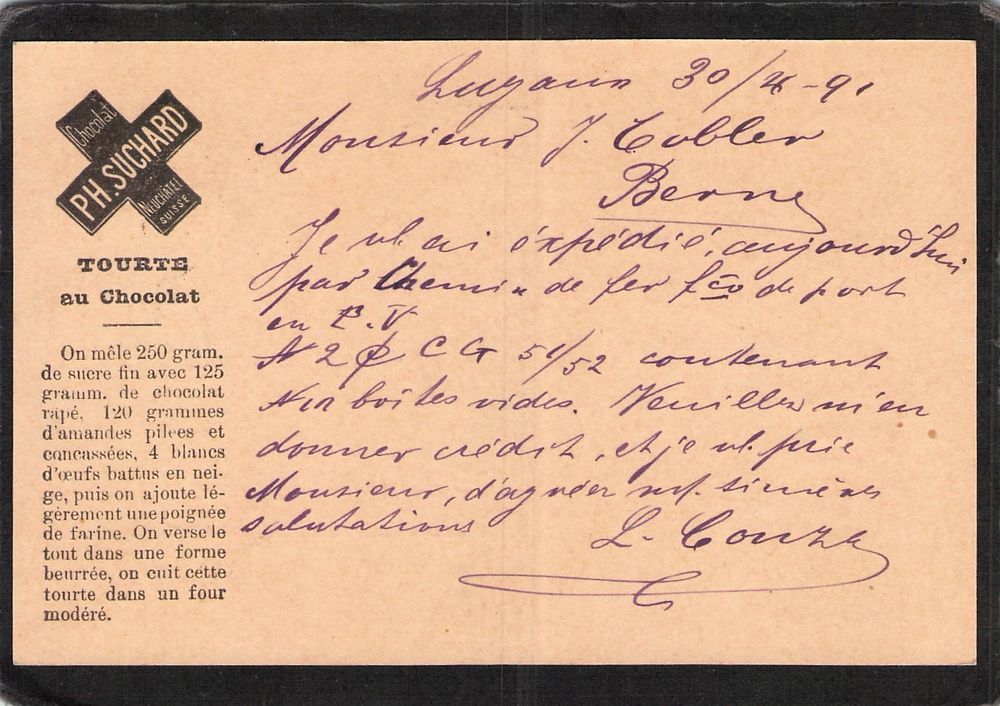 Chocolat
PH. SUCHARD
NEUCHÂTEL
SUISSE
TOURTE
au Chocolat
On mêle 250 gram.
de sucre fin avec 125
gramm. de chocolat
rapé, 120 grammes
d'amandes pilées et
concassées, 4 blancs
d'œufs battus en nei-
ge, puis on ajoute lé-
gèrement une poignée
de farine. On verse le
tout dans une forme
beurrée, on cuit cette
tourte dans un four
modéré.
Lugano 30/X-91
Monsieur J. Tobler
Berne
Je vs. ai éxpédié, aujourd'hui
par Chemin de fer fco de port
en P.V
N 2 C G 51/52 contenant
boîtes vides. Veuillez m'en
donner crédit, et je vs. prie
Monsieur, d'agréer sincères
salutations
L.